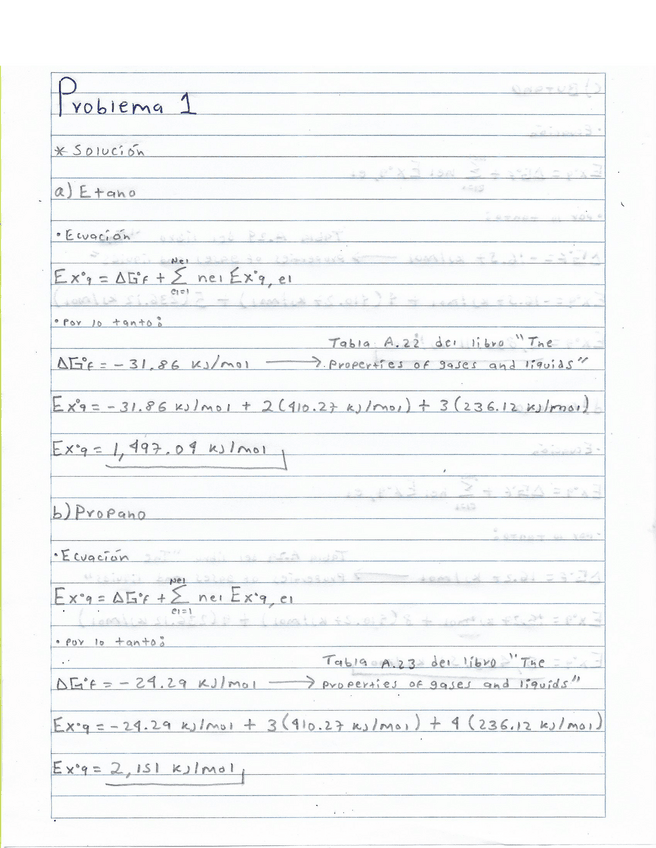 Problema 1
* Solución
a) Etano
• Ecuación
Ex°q = ΔG°f + Σ nel Ex°q, el
Nel
el=1
• Por lo tanto:
Tabla A.22 del libro "The
ΔG°f = -31.86 kJ/mol → Properties of gases and liquids"
Ex°q = -31.86 kJ/mol + 2(410.27 kJ/mol) + 3(236.12 kJ/mol)
Ex°q = 1,497.04 kJ/mol
b) Propano
• Ecuación
Ex°q = ΔG°f + Σ nel Ex°q, el
Nel
el=1
• Por lo tanto:
Tabla A.23 del libro "The
ΔG°f = -24.29 kJ/mol → Properties of gases and liquids"
Ex°q = -24.29 kJ/mol + 3(410.27 kJ/mol) + 4(236.12 kJ/mol)
Ex°q = 2,151 kJ/mol